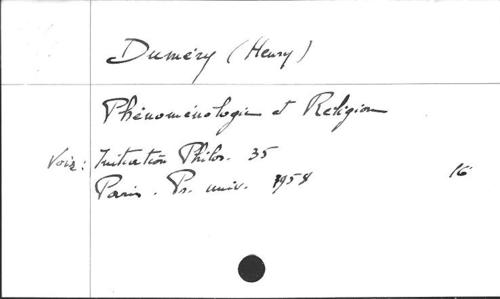 Duméry (Henry)
Phénoménologie et Religion
Voir: Initiation Philos. 35
Paris. Pr. univ. 1958 16